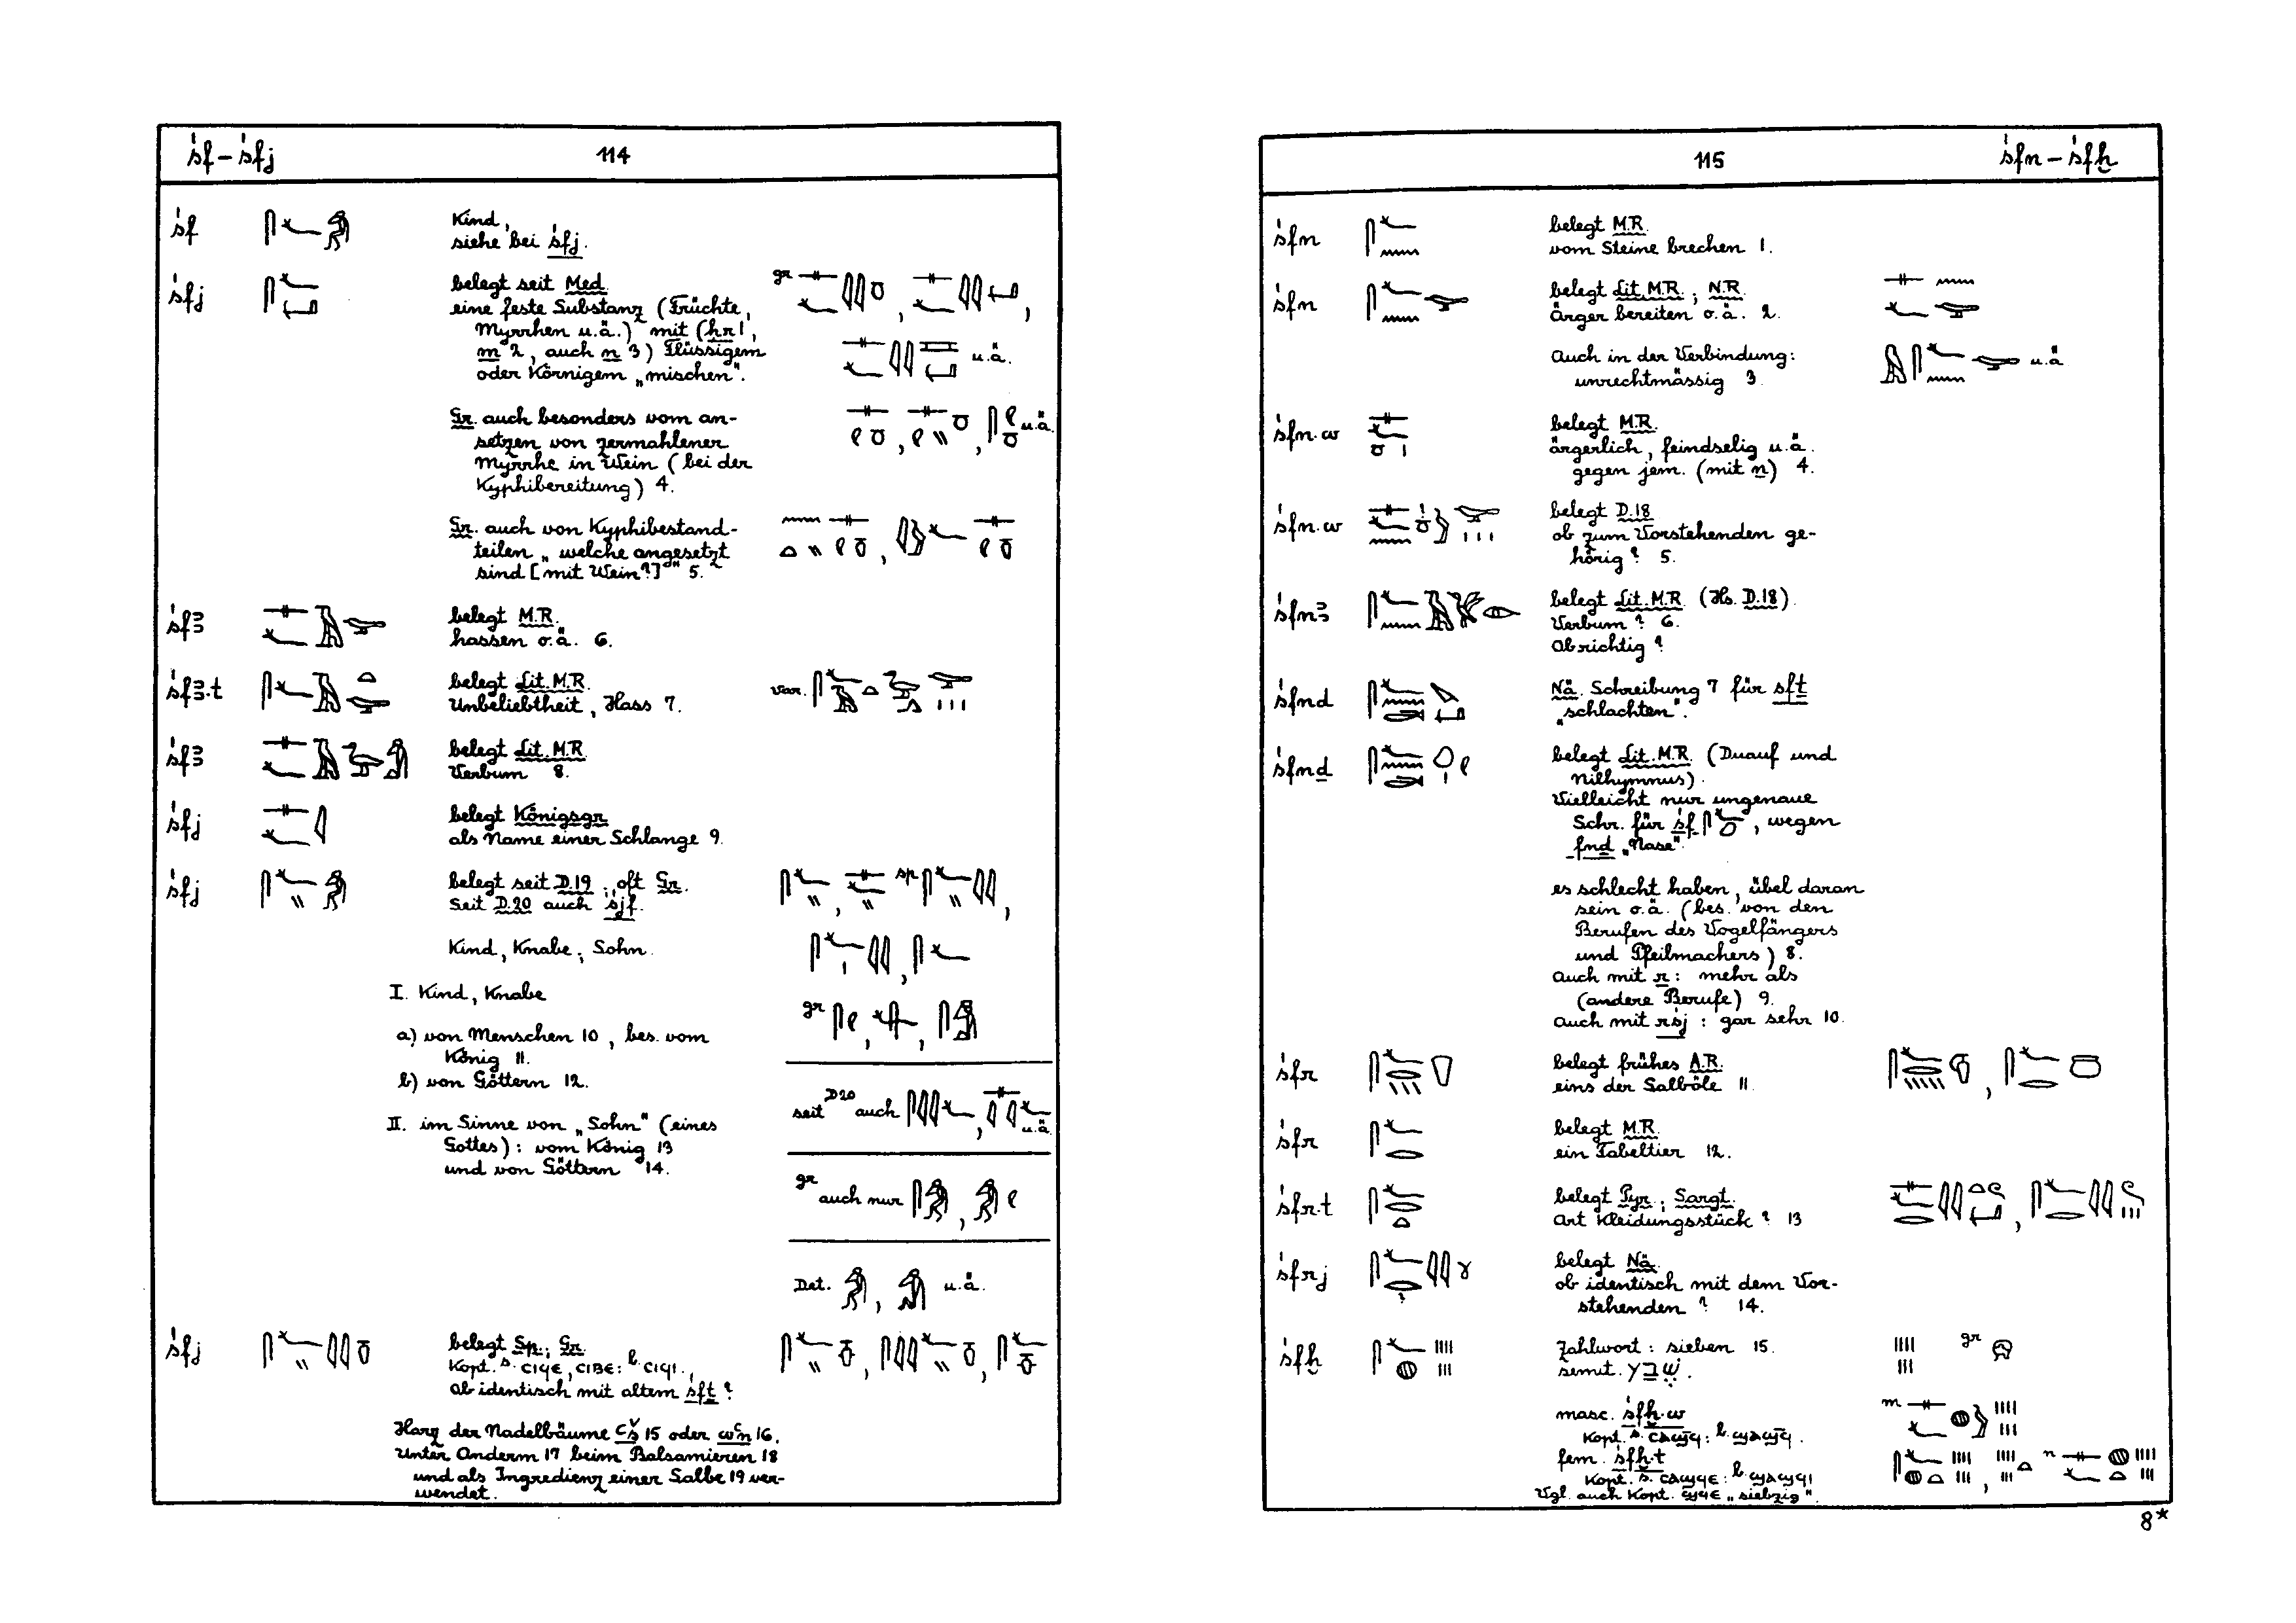 śf – śfj
114
śf
Kind,
siehe bei śfj.
śfj
belegt seit Med.
eine feste Substanz (Früchte,
Myrrhen u.ä.) mit (ḥr 1,
m 2, auch n 3) Flüssigem
oder Körnigem „mischen".
gr
u.ä.
Gr. auch besonders vom an-
setzen von zermahlener
Myrrhe in Wein (bei der
Kyphibereitung) 4.
u.ä.
Gr. auch von Kyphibestand-
teilen „welche angesetzt
sind [mit Wein?]" 5.
śfꜣ
belegt M.R.
hassen o.ä. 6.
śfꜣ·t
belegt Lit. M.R.
Unbeliebtheit, Hass 7.
Var.
śfꜣ
belegt Lit. M.R.
Verbum 8.
śfj
belegt Königsgr.
als Name einer Schlange 9.
śfj
belegt seit D.19; oft Gr.
Seit D.20 auch śjf.
sp
Kind, Knabe; Sohn.
I. Kind, Knabe
gr
a) von Menschen 10, bes. vom
König 11.
b) von Göttern 12.
seit D20 auch
u.ä.
II. im Sinne von „Sohn" (eines
Gottes): vom König 13
und von Göttern 14.
gr auch nur
Det. u.ä.
śfj
belegt Sp.; Gr.
Kopt. s. ⲥⲓϥⲉ, ⲥⲓⲃⲉ: b. ⲥⲓϥⲓ.
Ob identisch mit altem śfṯ?
Harz der Nadelbäume ꜥš 15 oder wꜥn 16.
Unter Anderm 17 beim Balsamieren 18
und als Ingredienz einer Salbe 19 ver-
wendet.
115
śfn – śfḫ
śfn
belegt M.R.
vom Steine brechen 1.
śfn
belegt Lit. M.R.; N.R.
Ärger bereiten o.ä. 2.
Auch in der Verbindung:
unrechtmässig 3.
u.ä
śfn·w
belegt M.R.
ärgerlich, feindselig u.ä.
gegen jem. (mit n) 4.
śfn·w
belegt D.18
ob zum Vorstehenden ge-
hörig? 5.
śfnꜣ
belegt Lit. M.R. (Hs. D.18).
Verbum? 6.
Ob richtig?
śfnd
Nä. Schreibung 7 für śfṯ
„schlachten".
śfnḏ
belegt Lit. M.R. (Duauf und
Nilhymnus).
Vielleicht nur ungenaue
Schr. für śf, wegen
fnḏ „Nase".
es schlecht haben, übel daran
sein o.ä. (bes. von den
Berufen des Vogelfängers
und Pfeilmachers) 8.
Auch mit r: mehr als
(andere Berufe) 9.
Auch mit rśj: gar sehr 10.
śfr
belegt frühes A.R.
eins der Salböle 11.
śfr
belegt M.R.
ein Fabeltier 12.
śfr·t
belegt Pyr.; Sargt.
Art Kleidungsstück? 13
śfrj
belegt Nä.
ob identisch mit dem Vor-
stehenden? 14.
śfḫ
Zahlwort: sieben 15.
semit. שׁבע.
gr
masc. śfḫ·w
Kopt. s. ⲥⲁϣϥ̄: b. ϣⲁϣϥ̄.
m
fem. śfḫ·t
Kopt. s. ⲥⲁϣϥⲉ: b. ϣⲁϣϥⲓ
n
Vgl. auch Kopt. ϣϥⲉ „siebzig".
8*